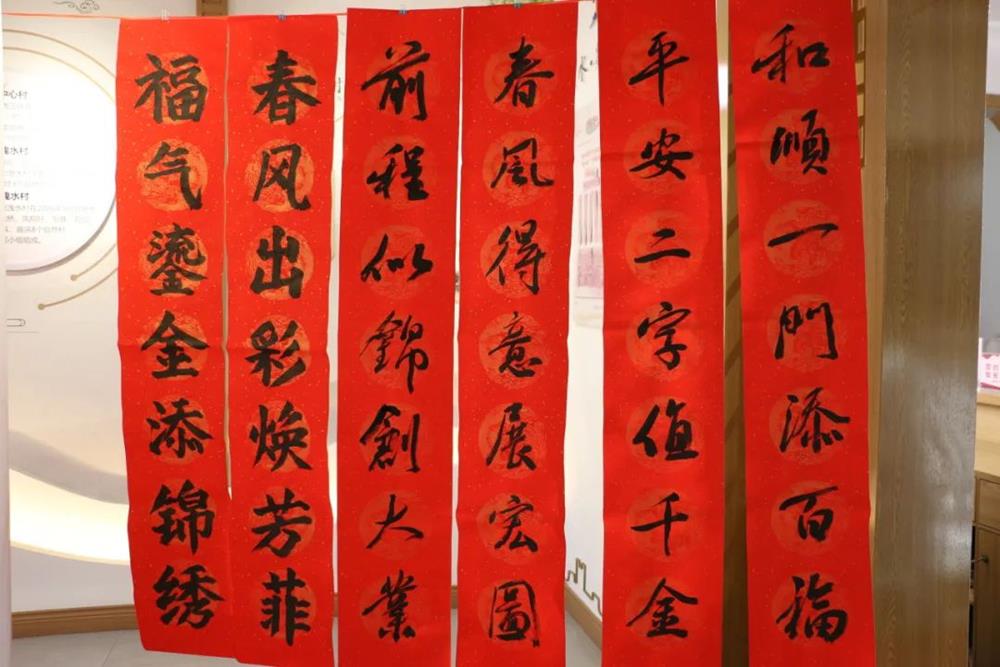 和順一門添百福
平安二字值千金
春風得意展宏圖
前程似錦創大業
春风出彩焕芳菲
福气鎏金添锦绣
中心村
水村
水村